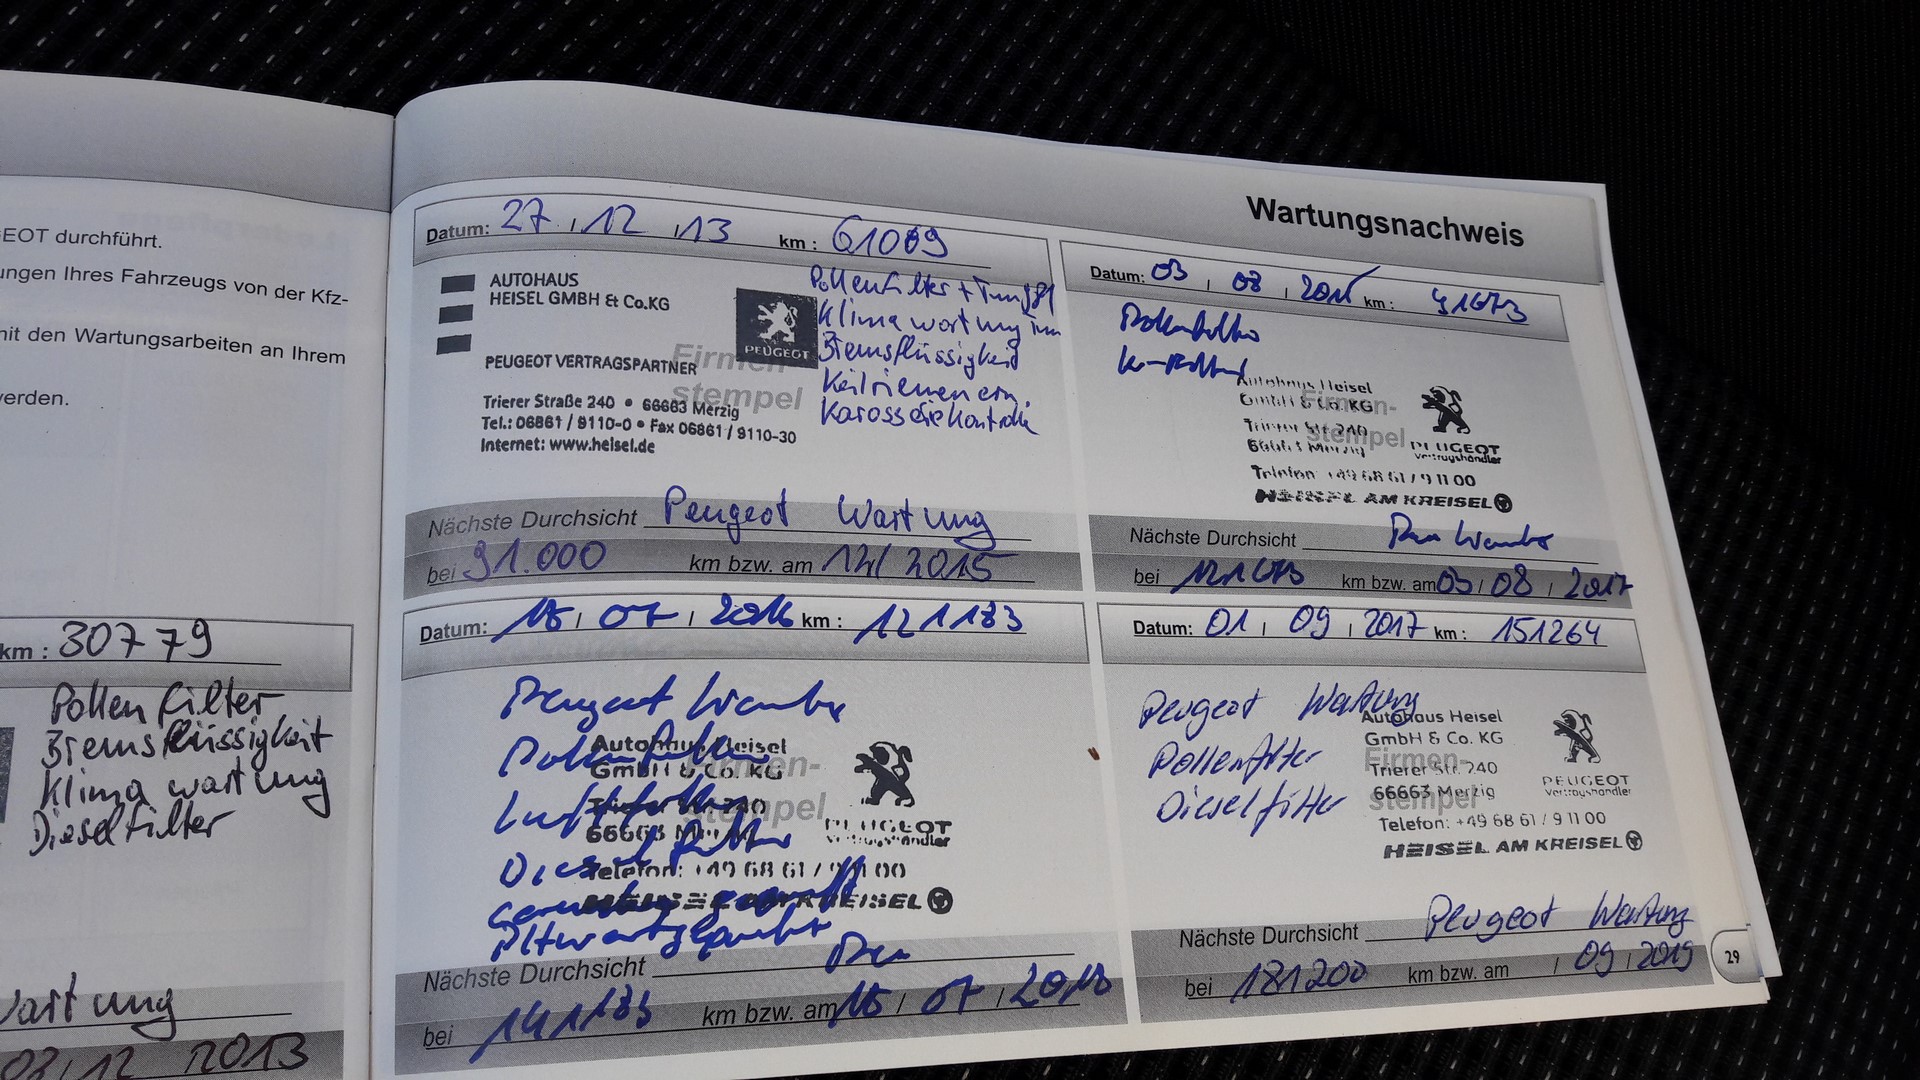 GEOT durchführt.
ungen Ihres Fahrzeugs von der Kfz-
nit den Wartungsarbeiten an Ihrem
erden.
km : 30779
Pollenfilter
Bremsflüssigkeit
Klimawartung
Dieselfilter
Wartung
12 2013
Wartungsnachweis
Datum: 27 12 13 km : 61089
AUTOHAUS
HEISEL GMBH & Co.KG
PEUGEOT
PEUGEOT VERTRAGSPARTNER
Firmen
stempel
Trierer Straße 240 • 66663 Merzig
Tel.: 06861 / 9110-0 • Fax 06861 / 9110-30
Internet: www.heisel.de
Pollenfilter +
Klimawartung
Bremsflüssigkeit
Keilriemen ern.
Karosseriekontrolle
Nächste Durchsicht Peugeot Wartung
bei 91.000 km bzw. am 12/2015
Datum: 03 08 2015 km : 91673
Pollenfilter
Autohaus Heisel
GmbH & Co. KG
Firmen-
stempel
Trierer Str. 240
66663 Merzig
PEUGEOT
Vertragshändler
Telefon: +49 68 61 / 9 11 00
HEISEL AM KREISEL
Nächste Durchsicht
bei 121673 km bzw. am 03 / 08 / 2017
Datum: 18 07 2016 km : 121183
Peugeot Wartung
Pollenfilter
Luftfilter
Dieselfilter
Autohaus Heisel
GmbH & Co. KG
Firmen-
stempel
Trierer Str. 240
66663 Merzig
PEUGEOT
Vertragshändler
Telefon: +49 68 61 / 9 11 00
HEISEL AM KREISEL
Nächste Durchsicht
bei 141183 km bzw. am 18 / 07 / 2018
Datum: 01 09 2017 km : 151264
Peugeot Wartung
Pollenfilter
Dieselfilter
Autohaus Heisel
GmbH & Co. KG
Firmen-
stempel
Trierer Str. 240
66663 Merzig
PEUGEOT
Vertragshändler
Telefon: +49 68 61 / 9 11 00
HEISEL AM KREISEL
Nächste Durchsicht Peugeot Wartung
bei 181200 km bzw. am / 09 / 2019
29